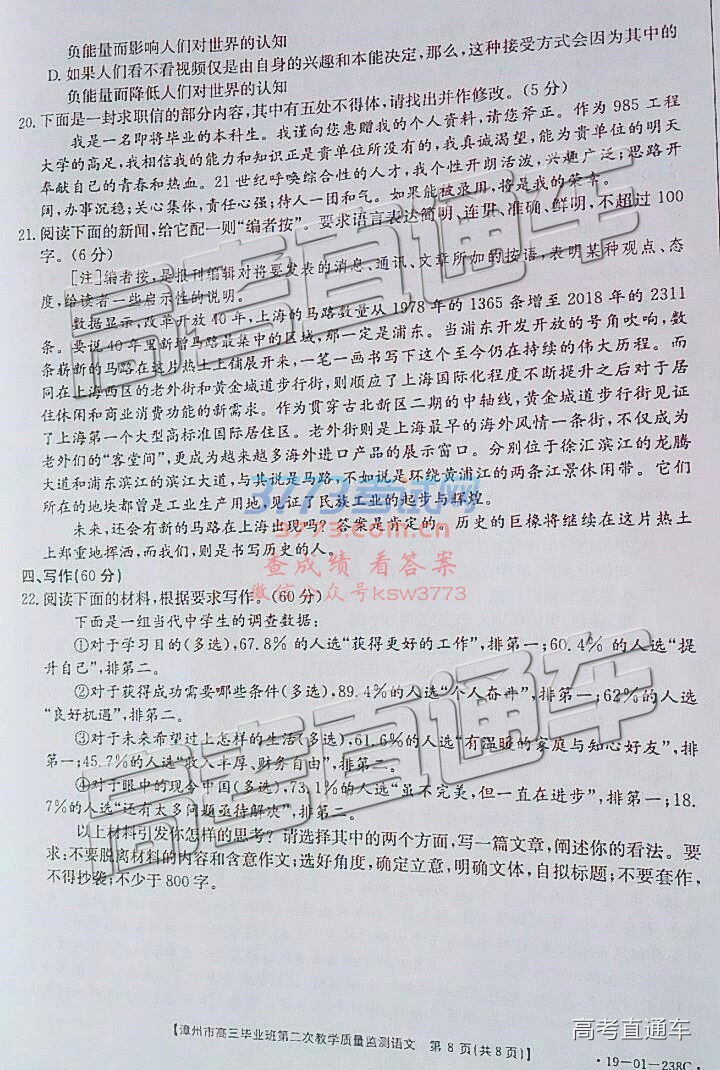 负能量而影响人们对世界的认知
D. 如果人们看不看视频仅是由自身的兴趣和本能决定,那么,这种接受方式会因为其中的
负能量而降低人们对世界的认知
20. 下面是一封求职信的部分内容,其中有五处不得体,请找出并作修改。(5分)
我是一名即将毕业的本科生。我谨向您惠赠我的个人资料,请您斧正。作为985工程
大学的高足,我相信我的能力和知识正是贵单位所没有的,我真诚渴望,能为贵单位的明天
奉献自己的青春和热血。21世纪呼唤综合性的人才,我个性开朗活波,兴趣广泛;思路开
阔,办事沉稳;关心集体,责任心强;待人一团和气。如果能被录用,将是我的荣幸。
21. 阅读下面的新闻,给它配一则“编者按”。要求语言表达简明、连贯、准确、鲜明,不超过100
字。(6分)
[注]编者按,是报刊编辑对将要发表的消息、通讯、文章所加的按语,表明某种观点、态
度,给读者一些启示性的说明。
数据显示,改革开放40年,上海的马路数量从1978年的1365条增至2018年的2311
条。要说40年里新增马路最集中的区域,那一定是浦东。当浦东开发开放的号角吹响,数
条崭新的马路在这片热土上铺展开来,一笔一画书写下这个至今仍在持续的伟大历程。而
同在上海西区的老外街和黄金城道步行街,则顺应了上海国际化程度不断提升之后对于居
住休闲和商业消费功能的新需求。作为贯穿古北新区二期的中轴线,黄金城道步行街见证
了上海第一个大型高标准国际居住区。老外街则是上海最早的海外风情一条街,不仅成为
老外们的“客堂间”,更成为越来越多海外进口产品的展示窗口。分别位于徐汇滨江的龙腾
大道和浦东滨江的滨江大道,与其说是马路,不如说是环绕黄浦江的两条江景休闲带。它们
所在的地块都曾是工业生产用地,见证了民族工业的起步与辉煌。
未来,还会有新的马路在上海出现吗?答案是肯定的。历史的巨椽将继续在这片热土
上郑重地挥洒,而我们,则是书写历史的人。
四、写作(60分)
22. 阅读下面的材料,根据要求写作。(60分)
下面是一组当代中学生的调查数据:
①对于学习目的(多选),67.8%的人选“获得更好的工作”,排第一;60.4%的人选“提
升自己”,排第二。
②对于获得成功需要哪些条件(多选),89.4%的人选“个人奋斗”,排第一;62%的人选
“良好机遇”,排第二。
③对于未来希望过上怎样的生活(多选),61.6%的人选“有温暖的家庭与知心好友”,排
第一;45.7%的人选“收入丰厚、财务自由”,排第二。
④对于眼中的现今中国(多选),73.1%的人选“虽不完美,但一直在进步”,排第一;18.
7%的人选“还有太多问题亟待解决”,排第二。
以上材料引发你怎样的思考?请选择其中的两个方面,写一篇文章,阐述你的看法。要
求:不要脱离材料的内容和含意作文;选好角度,确定立意,明确文体,自拟标题;不要套作,
不得抄袭;不少于800字。
高考直通车
高考直通车
3773考试网
www.3773.com.cn
查成绩 看答案
微信公众号ksw3773
【漳州市高三毕业班第二次教学质量监测语文 第8页(共8页)】
高考直通车
·19-01-238C·